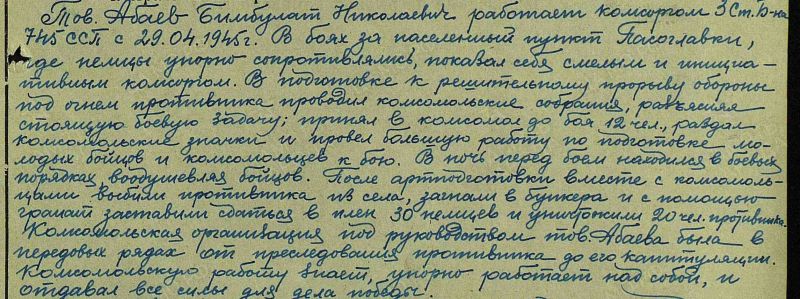 Тов. Абаев Бимбулат Николаевич работает комсоргом 3 Ст. Б-на
745 ССП с 29.04.1945г. В боях за населенный пункт Пасоглавки,
где немцы упорно сопротивлялись, показал себя смелым и инициа-
тивным комсоргом. В подготовке к решительному прорыву обороны
под огнем противника проводил комсомольские собрания, разъясняя
стоящую боевую задачу; принял в комсомол до боя 12 чел., раздал
комсомольские значки и провел большую работу по подготовке мо-
лодых бойцов и комсомольцев к бою. В ночь перед боем находился в боевых
порядках воодушевляя бойцов. После артподготовки вместе с комсомоль-
цами выбили противника из села, загнали в бункера и с помощью
гранат заставили сдаться в плен 30 немцев и уничтожили 20 чел. противника.
Комсомольская организация под руководством тов. Абаева была в
передовых рядах от преследования противника до его капитуляции.
Комсомольскую работу знает, упорно работает над собой, и
отдавал все силы для дела победы.